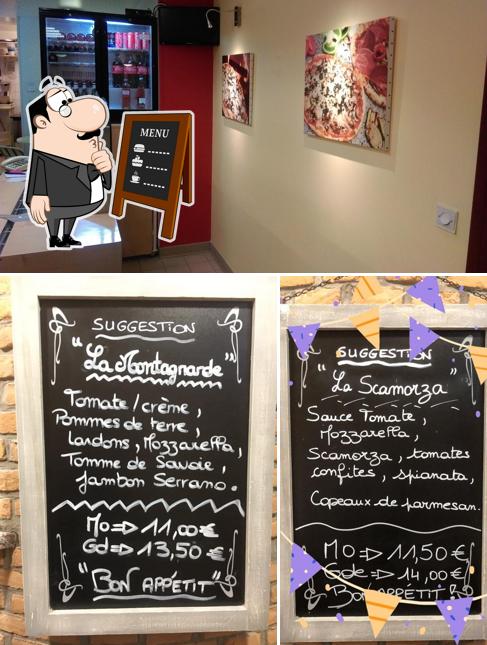 MENU
SUGGESTION
"La Montagnarde"
Tomate/crème,
Pommes de terre,
lardons, Mozzarella,
Tomme de Savoie,
Jambon Serrano.
Mo => 11,00 €
Gd => 13,50 €
"BON APPÉTIT"
SUGGESTION
"La Scamorza"
Sauce Tomate,
Mozzarella,
Scamorza, tomates
confites, spianata,
Copeaux de parmesan.
Mo => 11,50 €
Gde => 14,00 €
BON APPÉTIT!